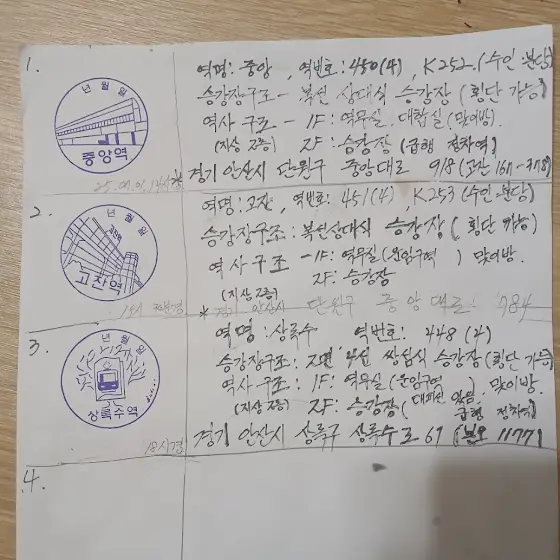 1.
년 월 일
중앙역
25.09.01, 14시
역명: 중앙 , 역번호: 450(4) , K252.(수인.분당)
승강장구조 - 복선 상대식 승강장 (횡단 가능)
역사 구조 - 1F: 역무실. 대합실 (맞이방).
(지상 2층) 2F: 승강장 (급행 정차역)
경기 안산시 단원구 중앙대로 918 (고잔 167-378)
2.
년 월 일
고잔역
역명: 고잔, 역번호: 451(4) , K253 (수인.분당)
승강장구조: 복선상대식 승강장 (횡단 가능)
역사구조 - 1F: 역무실 (운임구역 ) 맞이방.
(지상 2층) 2F: 승강장
* 경기 안산시 단원구 중앙대로 784
3.
년 월 일
상록수역
18시경
역명: 상록수 역번호: 448 (4)
승강장구조: 2면 4선 쌍섬식 승강장 (횡단 가능)
역사구조: 1F: 역무실 (운임구역 ). 맞이방
(지상 2층) 2F: 승강장 (대피선 있음. 급행 정차역)
경기 안산시 상록구 상록수로 61 (본오 1177)
4.